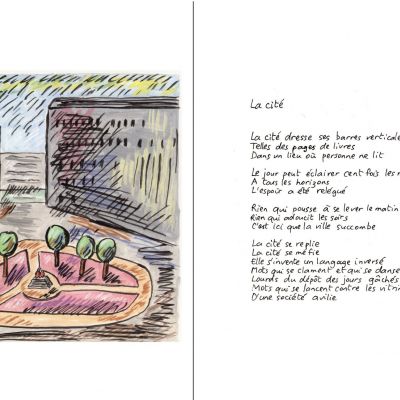 La cité
La cité dresse ses barres verticale
Telles des pages de livres
Dans un lieu où personne ne lit
Le jour peut éclairer cent fois les m
A tous les horizons
L'espoir a été relégué
Rien qui pousse à se lever le matin
Rien qui adoucit les soirs
C'est ici que la ville succombe
La cité se replie
La cité se méfie
Elle s'invente un langage inversé
Mots qui se clament et qui se danse
Lourds du dépôt des jours gâchés
Mots qui se lancent contre les vitrin
D'une société avilie